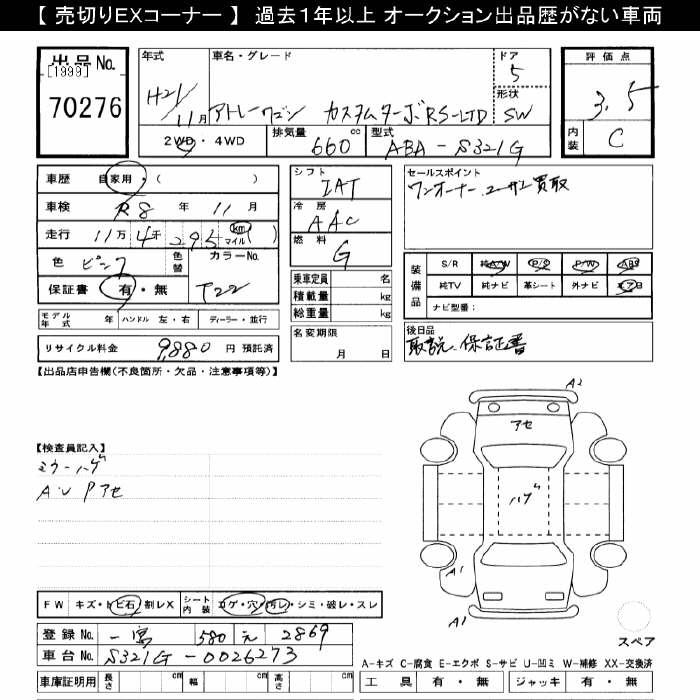 【 売切りEXコーナー 】 過去1年以上 オークション出品歴がない車両
出品 No.
[1999]
70276
年式
H21/11月
車名・グレード
アトレーワゴン カスタムターボRS-LTD
ドア
5
形状
SW
2WD・4WD
排気量
660 cc
型式
ABA-S321G
評価点
3.5
内装
C
車歴 自家用・( )
車検 R8 年 11 月
走行 11万 4千 295 (km マイル)
色 ピンク 色替
カラーNo.
T22
保証書 有・無
モデル年式 年 ハンドル 左・右 ディーラー・並行
リサイクル料金 9,880 円 預託済
シフト
IAT
冷房
AAC
燃料
G
乗車定員 名
積載量 kg
総重量 kg
名変期限
月 日
セールスポイント
ワンオーナー、ユーザー買取
装備品
S/R 純A/W P/S P/W ABS
純TV 純ナビ 革シート 外ナビ エアB
ナビ型番:
後日品
取説、保証書
【出品店申告欄(不良箇所・欠品・注意事項等)】
【検査員記入】
ミラーハゲ
A・U Pアセ
A2
アセ
ハゲ
A1
A1
スペア
FW キズ・トビ石 割レX シート内装 コゲ・穴・汚レ・シミ・破レ・スレ
登録 No. 一宮 580 え 2869
車台 No. S321G-0026273
車庫証明用 長さ cm 幅 cm 高さ cm
A-キズ C-腐食 E-エクボ S-サビ U-凹ミ W-補修 XX-交換済
工具 有・無 ジャッキ 有・無